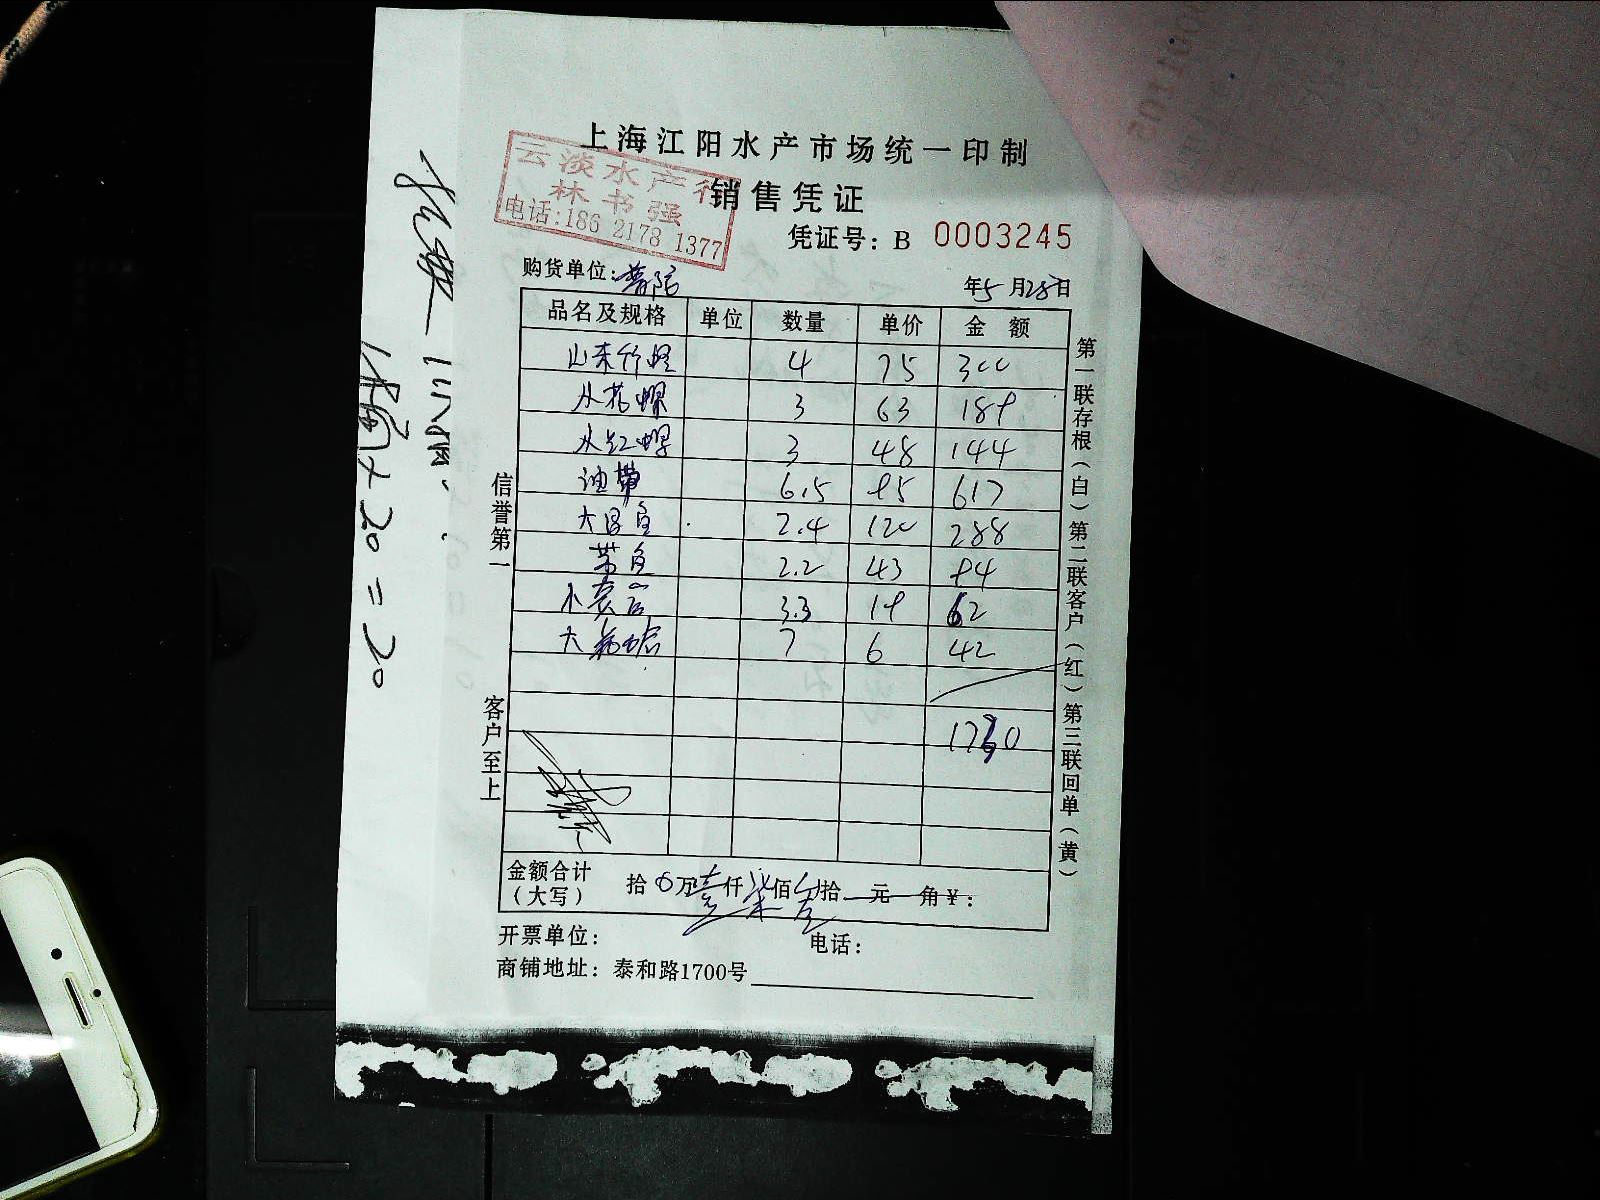 上海江阳水产市场统一印制
销售凭证
云淡水产行
林书强
电话:186 2178 1377
凭证号: B 0003245
购货单位:普陀
年5月28日
品名及规格 单位 数量 单价 金额
山东竹蛏 4 75 300
从花螺 3 63 189
从红螺 3 48 144
油带 6.5 95 617
大昌鱼 2.4 120 288
带鱼 2.2 43 94
3.3 19 62
大 7 6 42
1730
金额合计
(大写)
拾 0万壹仟柒佰 拾 元 角¥:
开票单位:
电话:
商铺地址: 泰和路1700号
信誉第一
客户至上
第一联存根(白)第二联客户(红)第三联回单(黄)
1桶×20=20